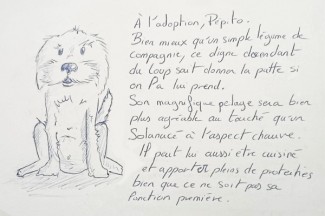 À l'adoption, Pépito.
Bien mieux qu'un simple légume de
compagnie, ce digne descendant
du loup sait donner la patte si
on l'a lui prend.
Son magnifique pelage sera bien
plus agréable au touché qu'un
Solanacé à l'aspect chauve.
Il peut lui aussi être cuisiné
et apporter pleins de protéines
bien que ce ne soit pas sa
fonction première.